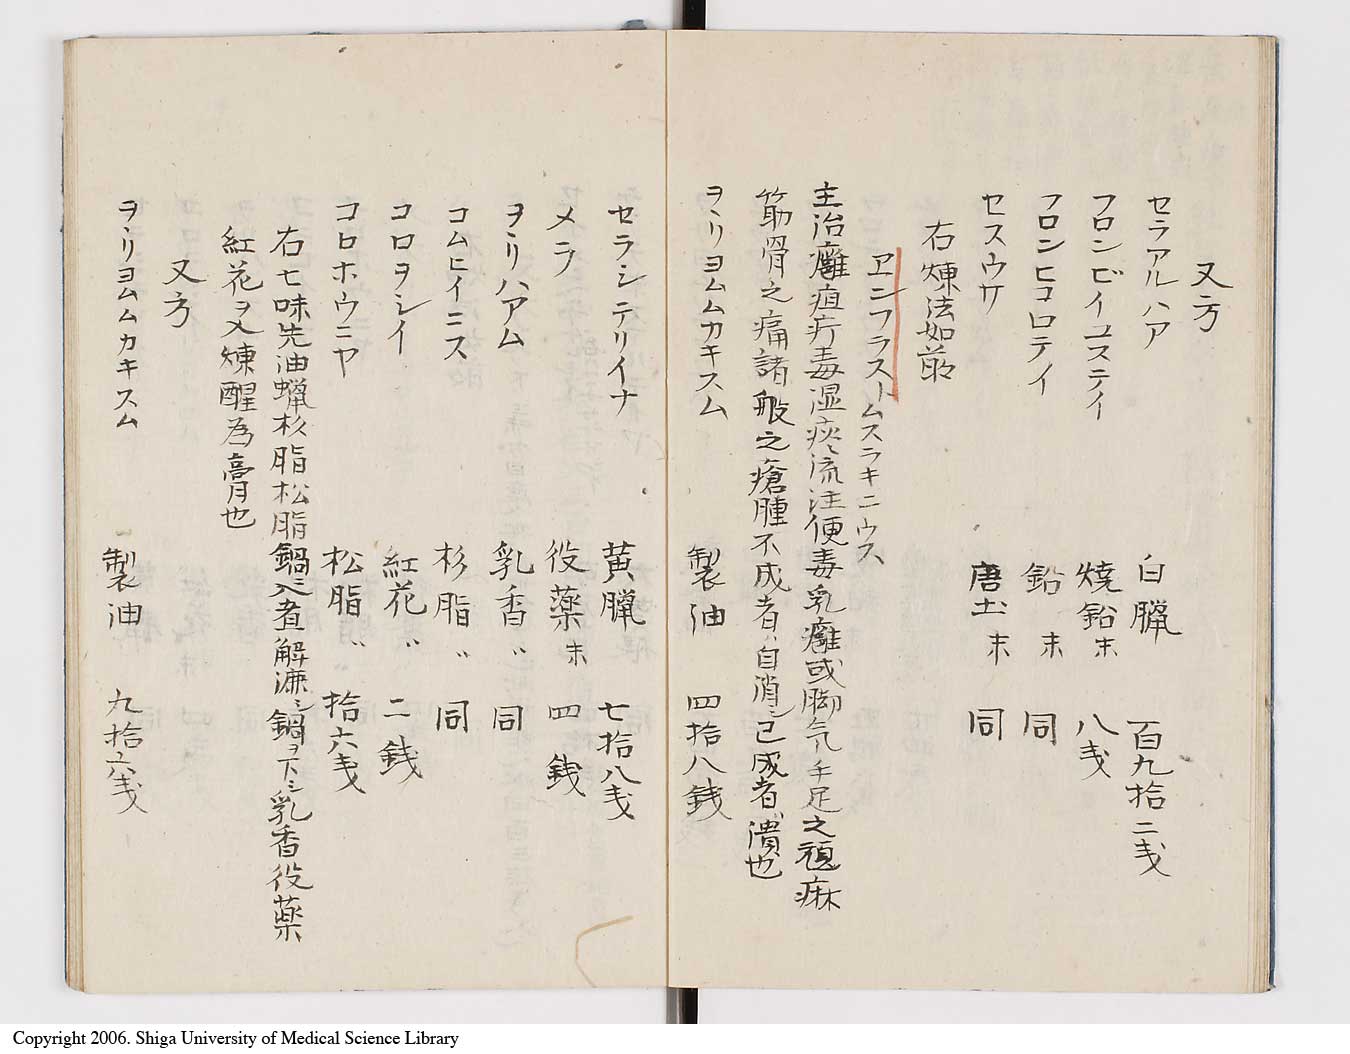 又方
セラアルハア 白臘 百九拾二戔
フロンビイユステイ 焼鉛末 八戔
フロンヒコロテイ 鉛末 同
セスウサ 唐土末 同
右煉法如前
ヱンフラストムスラキニウス
主治癰疽疔毒湿痰流注便毒乳癰或脚气手足之頑麻
筋骨之痛諸般之瘡腫不成者ハ自消シ已成者ハ潰也
ヲヽリヨムムカキスム 製油 四拾八銭
セラシテリイナ 黄臘 七拾八戔
メラ 役薬末 四銭
ヲヽリハアム 乳香〃 同
コムヒイニス 杉脂〃 同
コロヲシイ 紅花〃 二銭
コロホウニヤ 松脂〃 拾六戔
右七味先油蝋杉脂松脂鍋ニ入煮解濂シ鍋ヲ下シ乳香役薬
紅花ヲ入煉醒為膏也
又方
ヲヽリヨムムカキスム 製油 九拾六戔
Copyright 2006. Shiga University of Medical Science Library